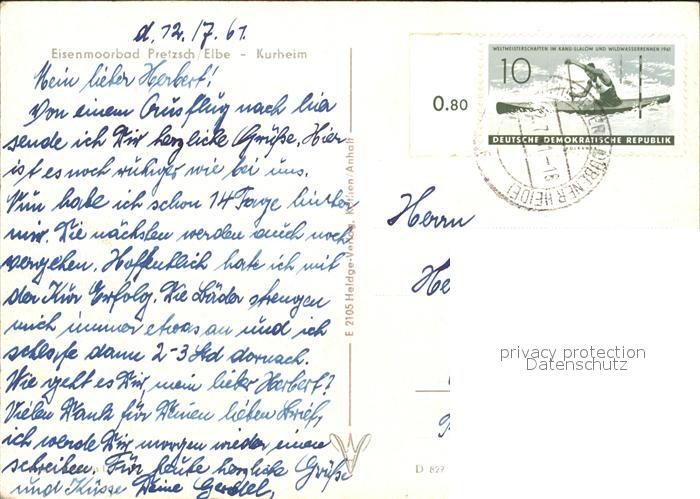 d. 12./7. 61.
Eisenmoorbad Pretzsch/Elbe - Kurheim
Mein lieber Herbert!
Von einem Ausflug nach hier
sende ich Dir herzliche Grüße. Hier
ist es noch ruhiger wie bei uns.
Nun habe ich schon 14 Tage hinter
mir. Die nächsten werden auch noch
vergehen. Hoffentlich hate ich mit
der Kur Erfolg. Die Bäder strengen
mich immer etwas an und ich
schlafe dann 2-3 Std darnach.
Wie geht es Dir mein lieber Herbert?
Vielen Dank für Deinen lieben Brief,
ich werde Dir morgen wieder einen
schreiben. Für heute herzliche Grüße
und Küsse Deine
E 2105 Heldge-Verlag, Köthen/Anhalt
0.80
WELTMEISTERSCHAFTEN IM KANU-SLALOM UND WILDWASSERRENNEN 1961
10
DEUTSCHE DEMOKRATISCHE REPUBLIK
DÜBENER HEIDE
Herrn
He
privacy protection
Datenschutz
D 827